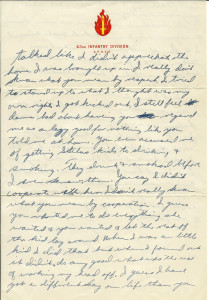 63RD INFANTRY DIVISION
talked like I didn't appreciate the
home I was brought up in. I really don't
know what you mean by respect. I tried
to stand up to what I thought was my
own right & got kicked out. I still feel
down bad about having you regard
me as a lazy good for nothing like you
told me at home. You even accused me
of getting kids to drinking &
smoking. They drank & smoked before
I even knew them. You say I didn't
cooperate with him. I don't really know
what you mean by cooperation. I guess
you wanted me to do everything she
wanted & you wanted & let the rest of
the kids lay around. When I was a little
kid I did that but when I found out
it didn't do any good what was the use
of working my head off. I guess I have
got a different way on life than you